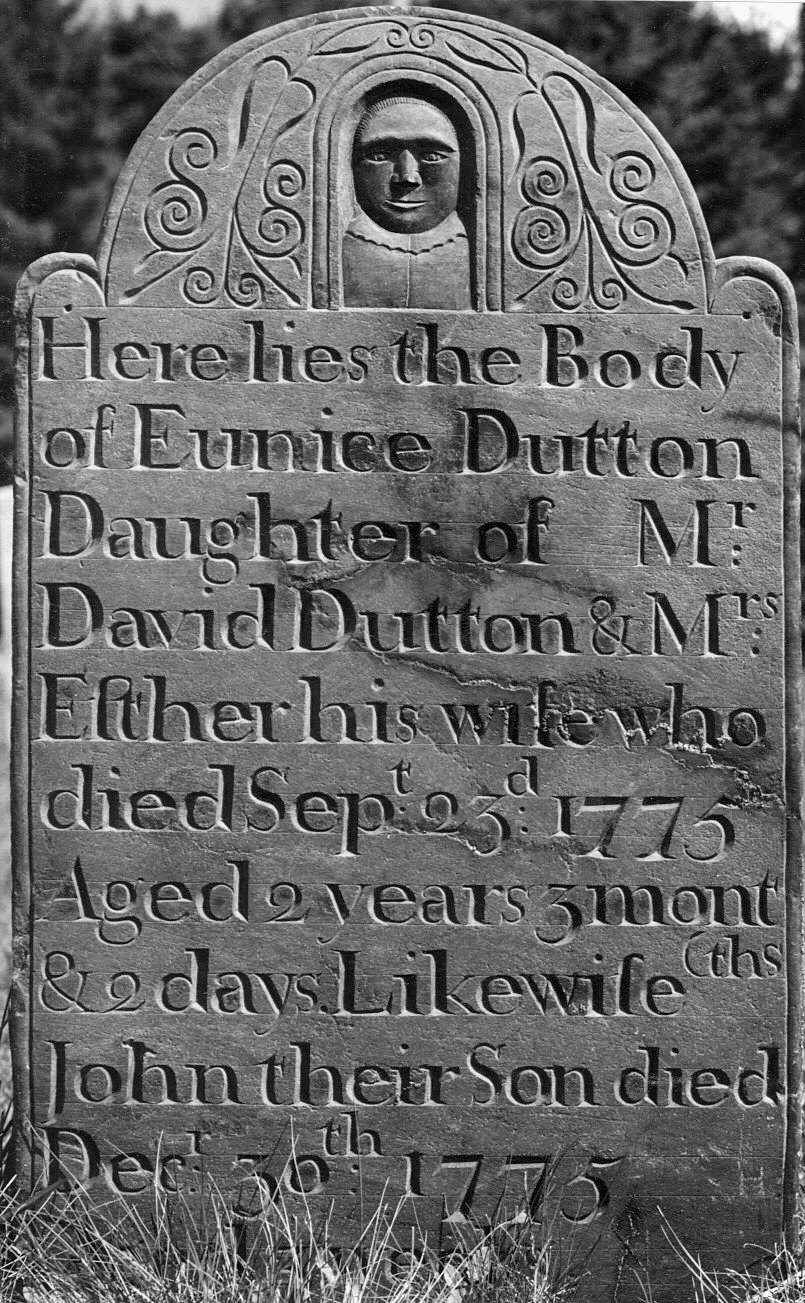 Here lies the Body
of Eunice Dutton
Daughter of Mr.
David Dutton & Mrs.
Eſther his wife who
died Sept. 23d: 1775
Aged 2 years 3 mont
& 2 days. Likewiſe (ths
John their Son died
Decr. 30th: 1775